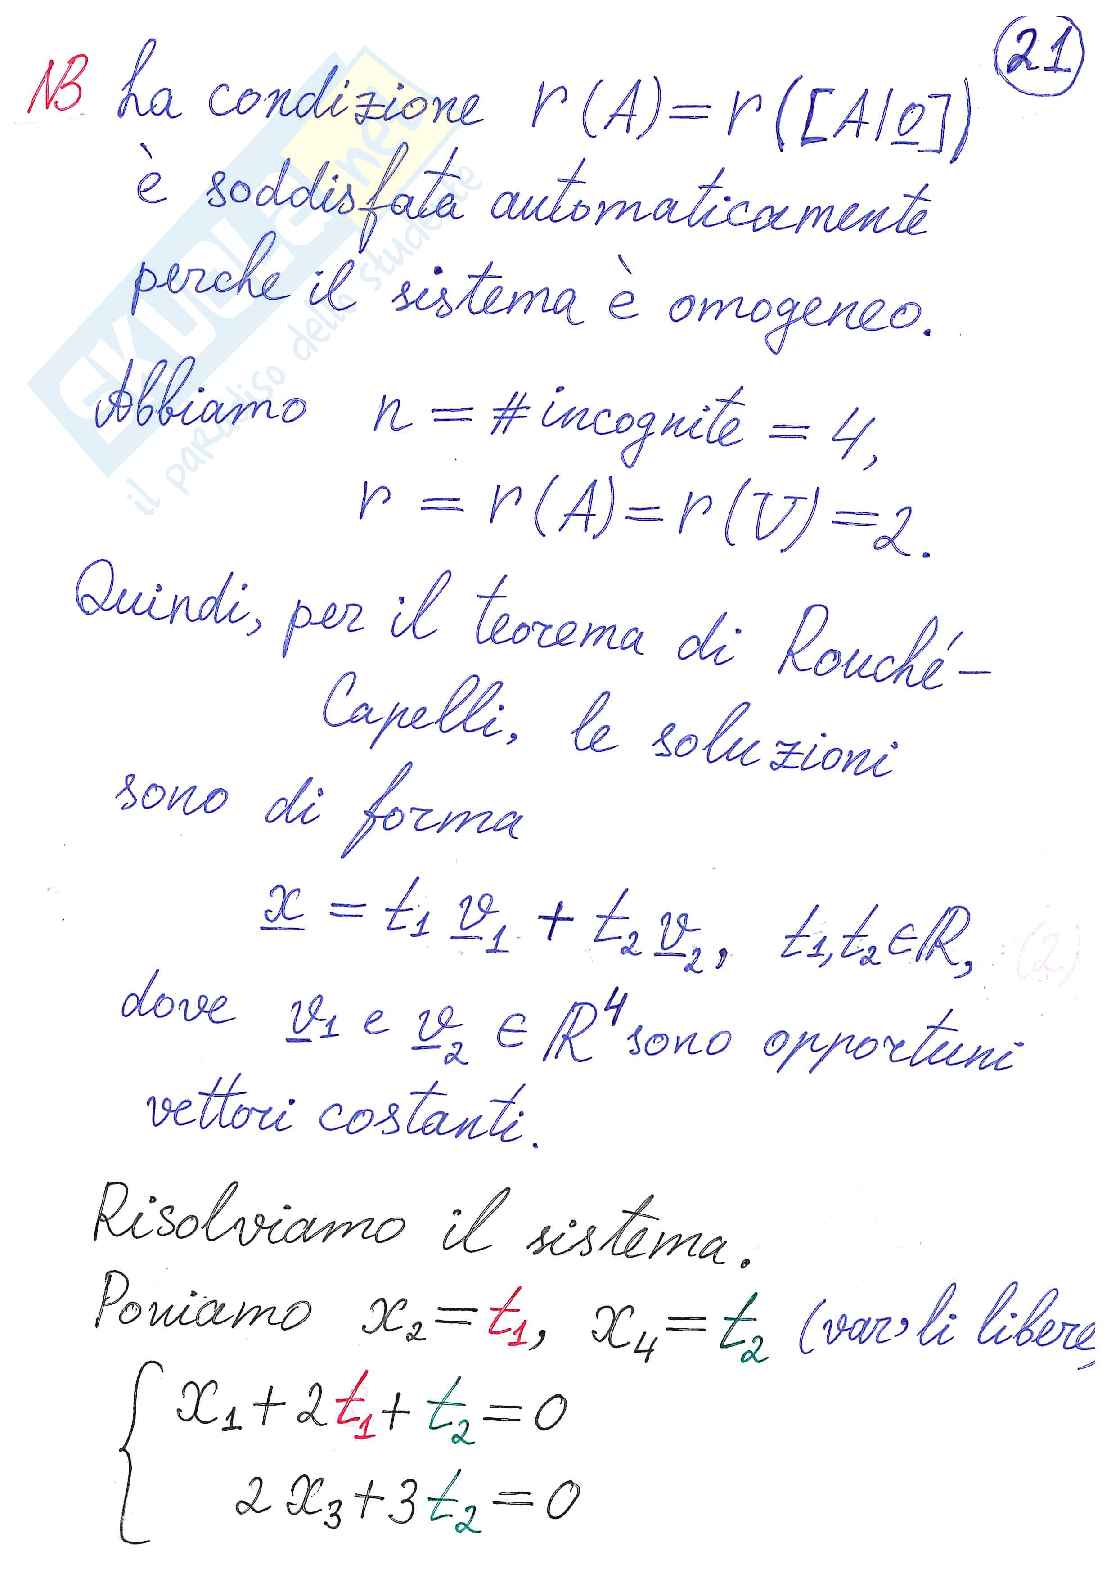 21
NB La condizione r(A)=r([A|0])
è soddisfata automaticamente
perche il sistema è omogeneo.
Abbiamo n = # incognite = 4,
r = r(A)=r(U)=2.
Quindi, per il teorema di Rouché-
Capelli, le soluzioni
sono di forma
x = t1 v1 + t2 v2, t1,t2∈R, (2)
dove v1 e v2 ∈ R^4 sono opportuni
vettori costanti.
Risolviamo il sistema.
Poniamo x2=t1, x4=t2 (var.li libere)
{ x1+2t1+t2=0
2x3+3t2=0
SKUOLA.net
il paradiso dello studente